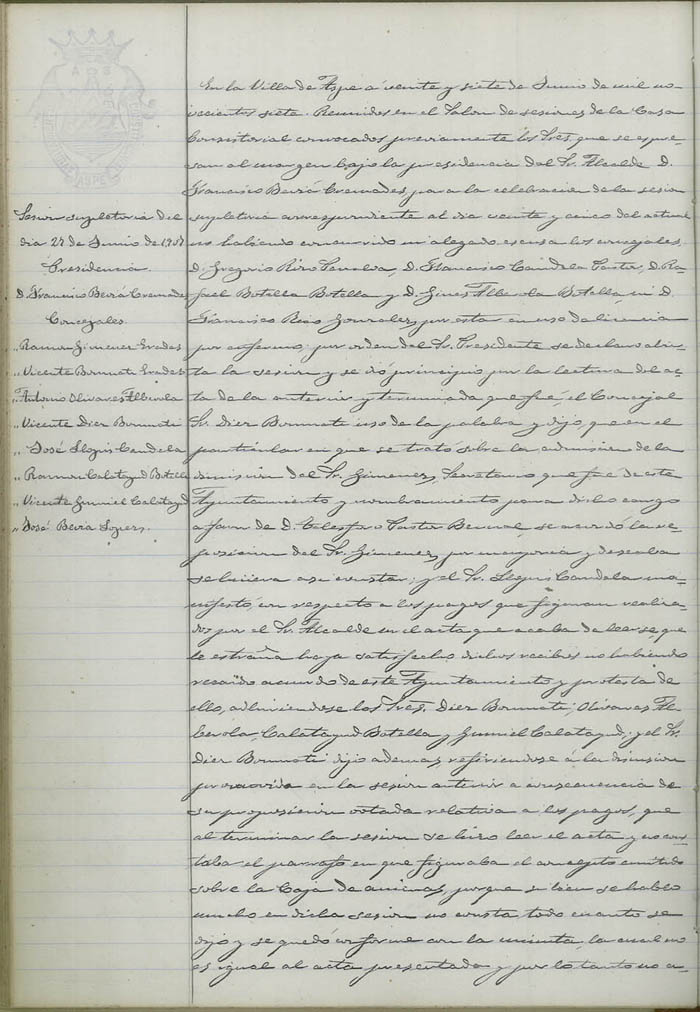 Sesion supletoria del
dia 27 de Junio de 1907
Presidencia
D. Francisco Beviá Cremades
Concejales
„ Ramon Gimenez Erades
„ Vicente Bonmati Erades
„ Antonio Olivares Alberola
„ Vicente Dier Bonmati
„ José Llopis Candela
„ Ramon Calatayud Botella
„ Vicente Gumiel Calatayud
„ José Beviá Lopez.
En la Villa de Aspe a veinte y siete de Junio de mil no-
vecientos siete. Reunidos en el Salon de sesiones de la Casa
Consistorial convocados previamente los Sres. que se espre-
san al margen bajo la presidencia del Sr. Alcalde D.
Francisco Beviá Cremades, para la celebracion de la sesion
supletoria correspondiente al dia veinte y cinco del actual
no habiendo concurrido ni alegado escusa los concejales
D. Gregorio Rizo D. Francisco Candela Pastor, D. Ra-
fael Botella Botella y D. Gines Alberola Botella, ni D.
Francisco Rizo Gonzalez, por estar en uso de licencia
por enfermo, por orden del Sr. Presidente se declaro abier-
ta la sesion y se dió principio por la lectura del ac-
ta de la anterior y terminada que fué, el Concejal
Sr. Dier Bonmati uso de la palabra y dijo, que en el
particular en que se trató sobre la admision de la
dimision del Sr. Gimenez, Secretario que fué de este
Ayuntamiento y nombramiento para dicho cargo
a favor de D. Telesforo Pastor Bernal, se acordó la re-
posicion del Sr. Gimenez, por mayoria y deseaba
se hiciera asi constar; y el Sr. Llopis Candela ma-
nifestó, con respecto a los pagos que figuran realiza-
dos por el Sr. Alcalde en el acta que acaba de leerse que
le estraña haya satisfecho dichos recibos no habiendo
recaido acuerdo de este Ayuntamiento y protesta de
ello, adhiriendose los Sres. Dier Bonmati, Olivares Al-
berola, Calatayud Botella y Gumiel Calatayud; y el Sr.
Dier Bonmati dijo ademas, refiriendose á la
promovida en la sesion anterior a consecuencia de
su proposicion votada relativa a los pagos, que
al terminar la sesion se hizo leer el acta y no cons-
taba el parrafo en que figuraba el concepto emitido
sobre la Caja de porque si bien se habló
mucho en dicha sesion no consta todo cuanto se
dijo y se quedó conforme con la minuta, la cual no
es igual al acta presentada y por lo tanto no a-